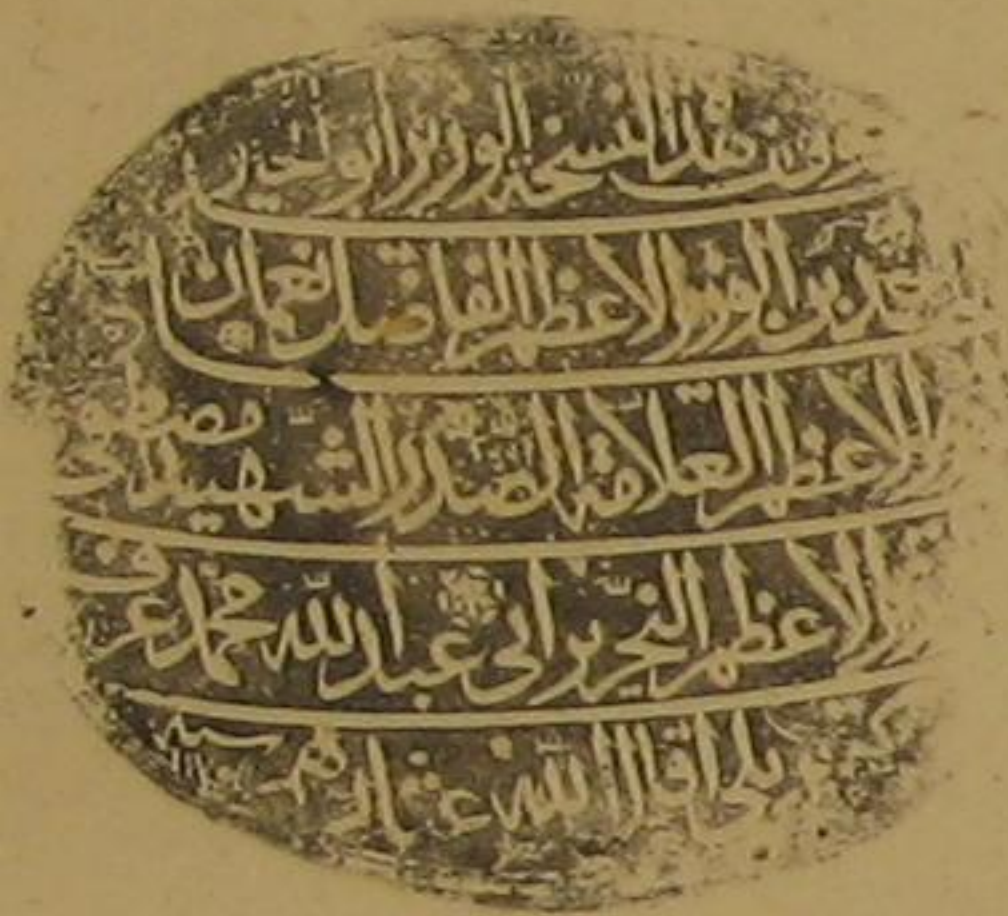 وقف هذا النسخة الوزير ابو الخير
احمد بن الوزير الاعظم الفاضل نعمان
الاعظم العلامة الصدر الشهيد مصطفى
الاعظم النحرير ابي عبد الله محمد عرف
بكوپريلي اقال الله عثارهم سنة